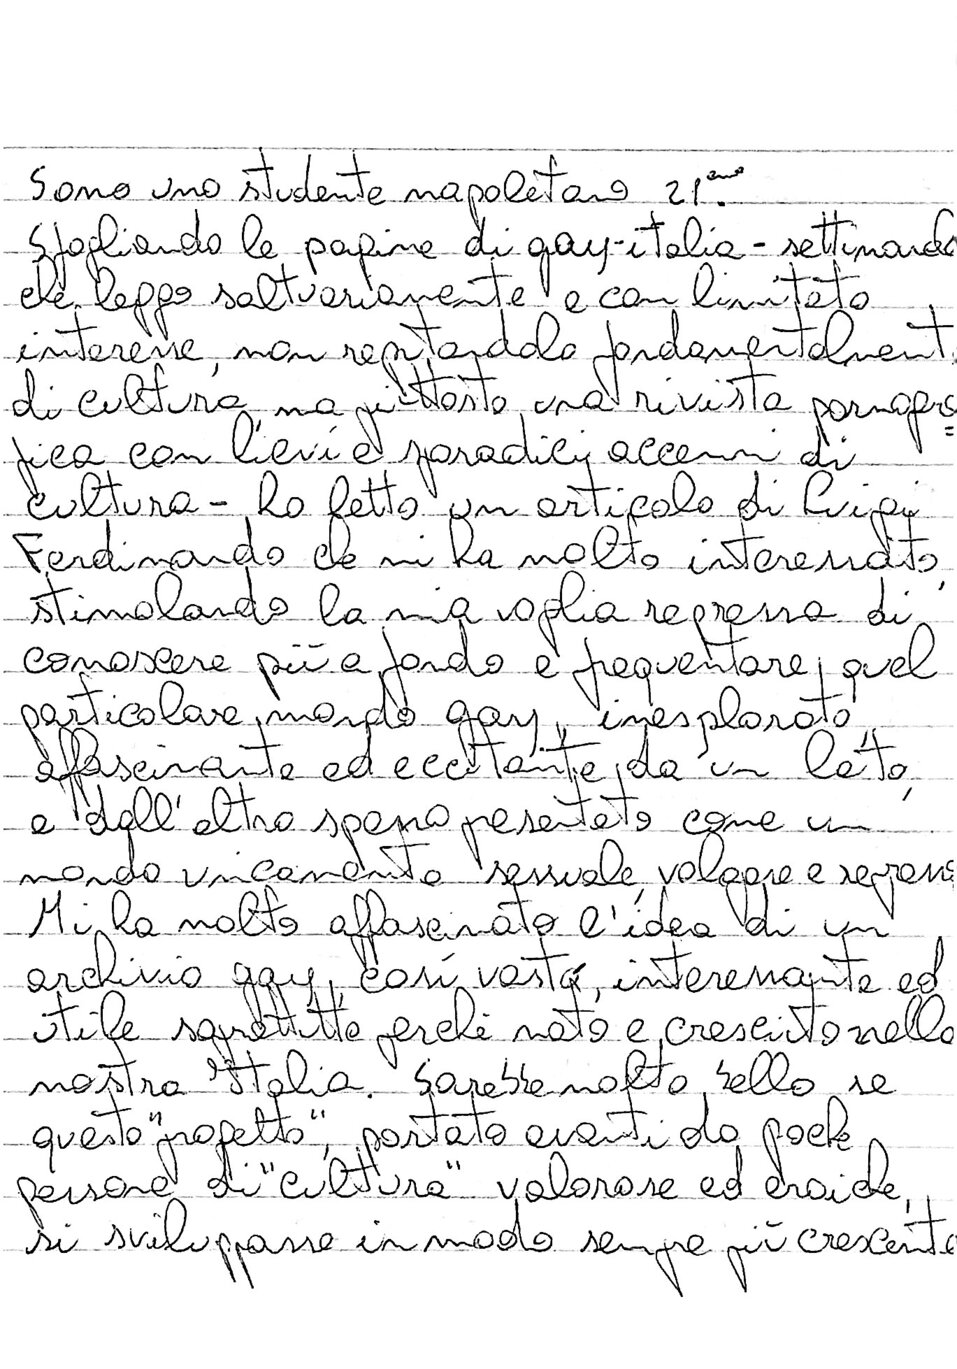 Sono uno studente napoletano 21enne.
Sfogliando le pagine di gay-italia - settimanale
che leggo saltuariamente e con limitato
interesse, non reputandola fondamentalmente
di cultura, ma piuttosto una rivista pornogra=
fica con lievi e sporadici accenni di
cultura - ho letto un articolo di Luigi
Ferdinando che mi ha molto interessato,
stimolando la mia voglia repressa di
conoscere più a fondo e frequentare quel
particolare mondo gay, inesplorato,
affascinante ed eccitante da un lato,
e dall'altro spesso presentato come un
mondo unicamente sessuale, volgare e represso
Mi ha molto affascinato l'idea di un
archivio gay, così vasto, interessante ed
utile soprattutto perché nato e cresciuto nella
nostra Italia. Sarebbe molto bello se
questo "progetto", portato avanti da poche
persone di "cultura" valorose ed eroiche,
si sviluppasse in modo sempre più crescente